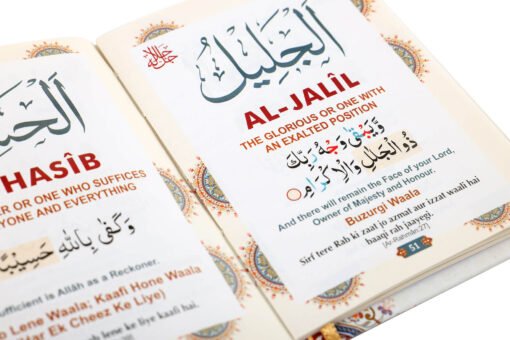 الحسيب
HASÎB
ER OR ONE WHO SUFFICES
YONE AND EVERYTHING
وَكَفَىٰ بِاللَّهِ حَسِيبًا
ufficient is Allâh as a Reckoner.
o Lene Waala; Kaafi Hone Waala
Har Ek Cheez Ke Liye)
ab lene ke liye kaafi hai.
جل جلاله
اَلْجَلِيلُ
AL-JALÎL
THE GLORIOUS OR ONE WITH
AN EXALTED POSITION
وَيَبْقَىٰ وَجْهُ رَبِّكَ
ذُو الْجَلَالِ وَالْإِكْرَامِ
And there will remain the Face of your Lord,
Owner of Majesty and Honour.
Buzurgi Waala
Sirf tere Rab ki zaat jo azmat aur izzat waali hai
baaqi rah jaayegi.
[Ar-Rahmân:27]
51